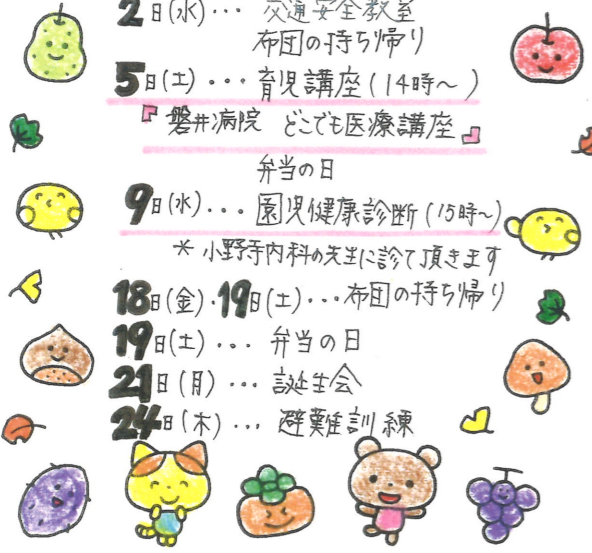 2日(水)… 交通安全教室
布団の持ち帰り
5日(土)… 育児講座(14時～)
『磐井病院 どこでも医療講座』
弁当の日
9日(水)… 園児健康診断(15時～)
＊小野寺内科の先生に診て頂きます
18日(金)・19日(土)…布団の持ち帰り
19日(土)… 弁当の日
21日(月)… 誕生会
24日(木)… 避難訓練